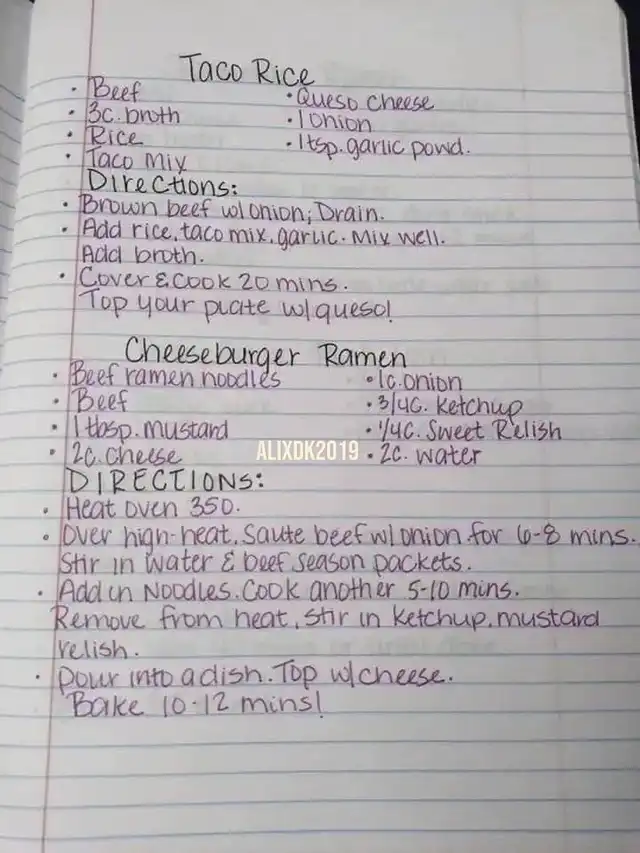 Taco Rice
• Beef
• 3c. broth
• Rice
• Taco Mix
• Queso cheese
• 1 onion
• 1tsp. garlic powd.
Directions:
• Brown beef w/onion, Drain.
• Add rice, taco mix, garlic. Mix well.
Add broth.
• Cover & cook 20 mins.
Top your plate w/queso!
Cheeseburger Ramen
• Beef ramen noodles
• Beef
• 1 tbsp. mustard
• 2c. cheese
• 1c. onion
• 3/4c. Ketchup
• 1/4c. Sweet Relish
• 2c. water
ALIXDK2019
DIRECTIONS:
• Heat oven 350.
• Over high-heat, Saute beef w/onion for 6-8 mins.
Stir in water & beef season packets.
• Add in Noodles. Cook another 5-10 mins.
Remove from heat, stir in ketchup, mustard
relish.
• Pour into a dish. Top w/cheese.
Bake 10-12 mins!